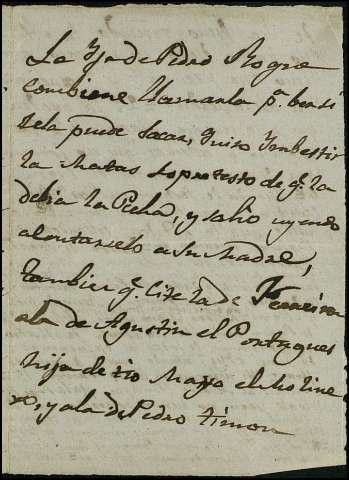 La Yja de Pedro Roque
combiene llamarla pª. ber si
sela puede sacar, quiso Ymbestir
la Matas so pretesto de qª. la
debia la Picha, y salio uyendo
a contarselo a su Madre,
tambien qª. cite la de Ferreira
a la de Agustin el Portugues
hija de tio Maya el moline
ro, y a la de Pedro timon